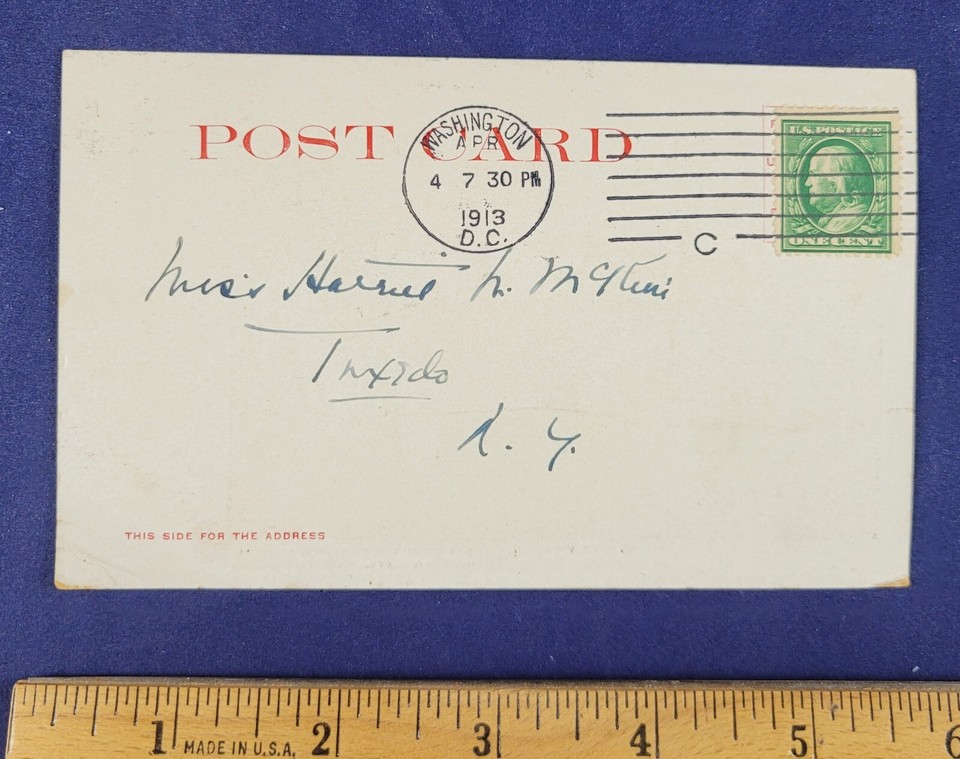 POST CARD
WASHINGTON
APR
4 7 30 PM
1913
D.C.
C
U.S. POSTAGE
ONE CENT
Miss Harriet
Tuxedo
N. Y.
THIS SIDE FOR THE ADDRESS
1 MADE IN U.S.A. 2 3 4 5 6